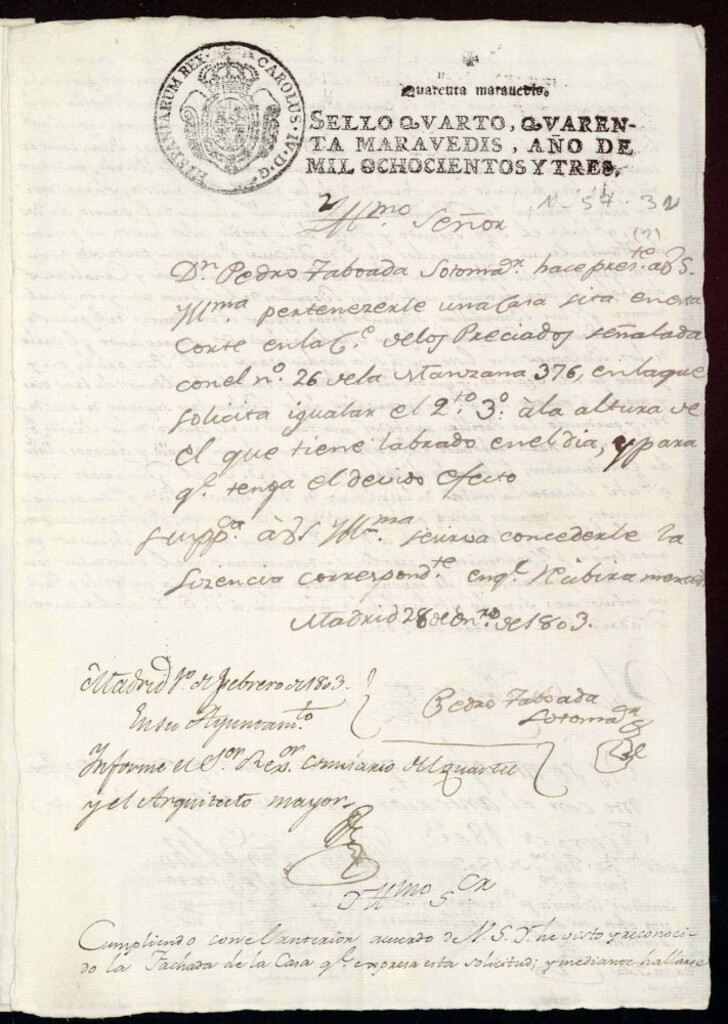 CAROLUS · IV · D · G · HISPANIARUM REX ·
Quarenta maravedis.
SELLO QVARTO, QVAREN-
TA MARAVEDIS, AÑO DE
MIL OCHOCIENTOS Y TRES.
Yllmo Señor
Dn Pedro Taboada Sotomr hace preste a V.S.
Yllma pertenezerle una Casa sita en esta
Corte en la Ce de los Preciados señalada
con el no. 26 de la Manzana 376, en la que
solicita igualar el 2to 3o à la altura de
el que tiene labrado en el dia, y para
qe tenga el devido efecto
Suppca à V.S. Yllma se sirva concederle la
Lizencia correspondte en qe recibira merced
Madrid 28 de Enro de 1803.
Pedro Taboada
Sotomr
Madrid 1o de Febrero de 1803.
En su Ayuntamto
Informe el Sor Rexor Comisario del quartel
y el Arquitecto mayor
Yllmo Sor
Cumpliendo con el anterior acuerdo de V.S.Y. he visto y reconoci-
do la Fachada de la Casa qe expresa esta solicitud; y mediante hallarse